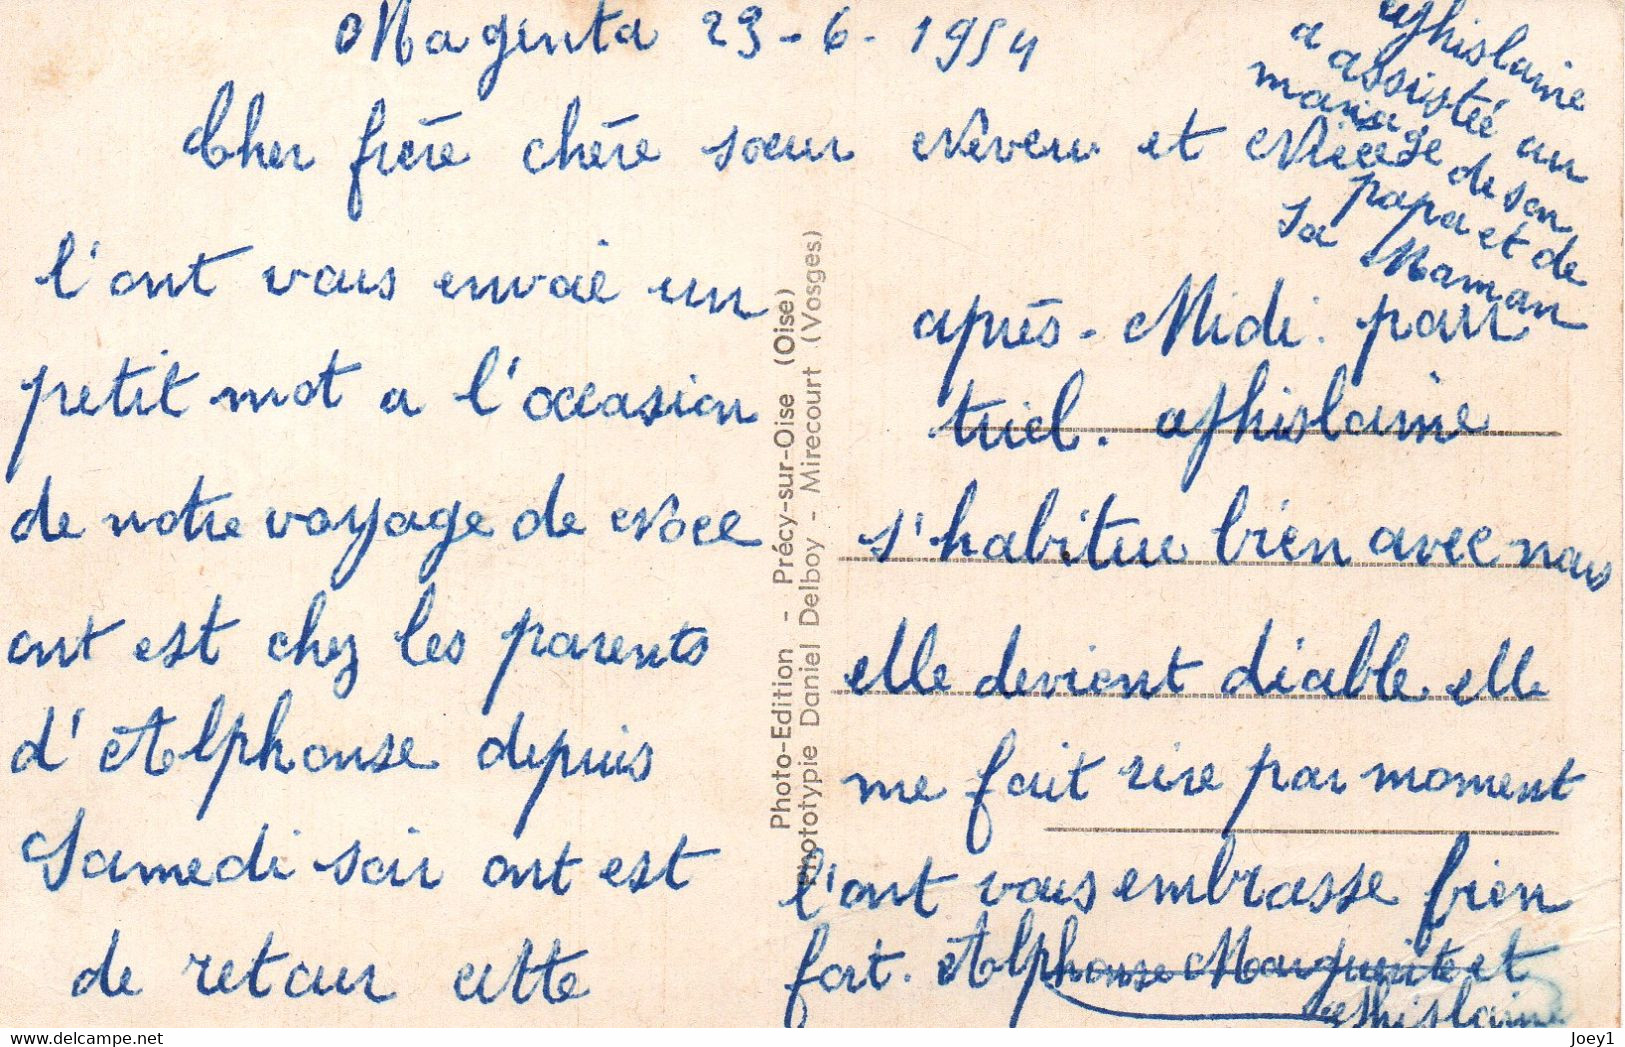 Magenta 23-6-1954
Cher frère chère soeur Neveu et Nièce
l'ont vous envoie un
petit mot a l'occasion
de notre voyage de Noce
ont est chez les parents
d'Alphonse depuis
Samedi soir ont est
de retour cette
après-Midi. pour
Ghislaine
s'habitue bien avec nous
elle devient diable elle
me fait rire par moment
l'ont vous embrasse bien
fort. Alphonse Marguerite et
Ghislaine
Ghislaine
a assistée au
mariage de son
papa et de
sa Maman
Photo-Edition - Précy-sur-Oise (Oise)
Phototypie Daniel Delboy - Mirecourt (Vosges)
Joey1
delcampe.net